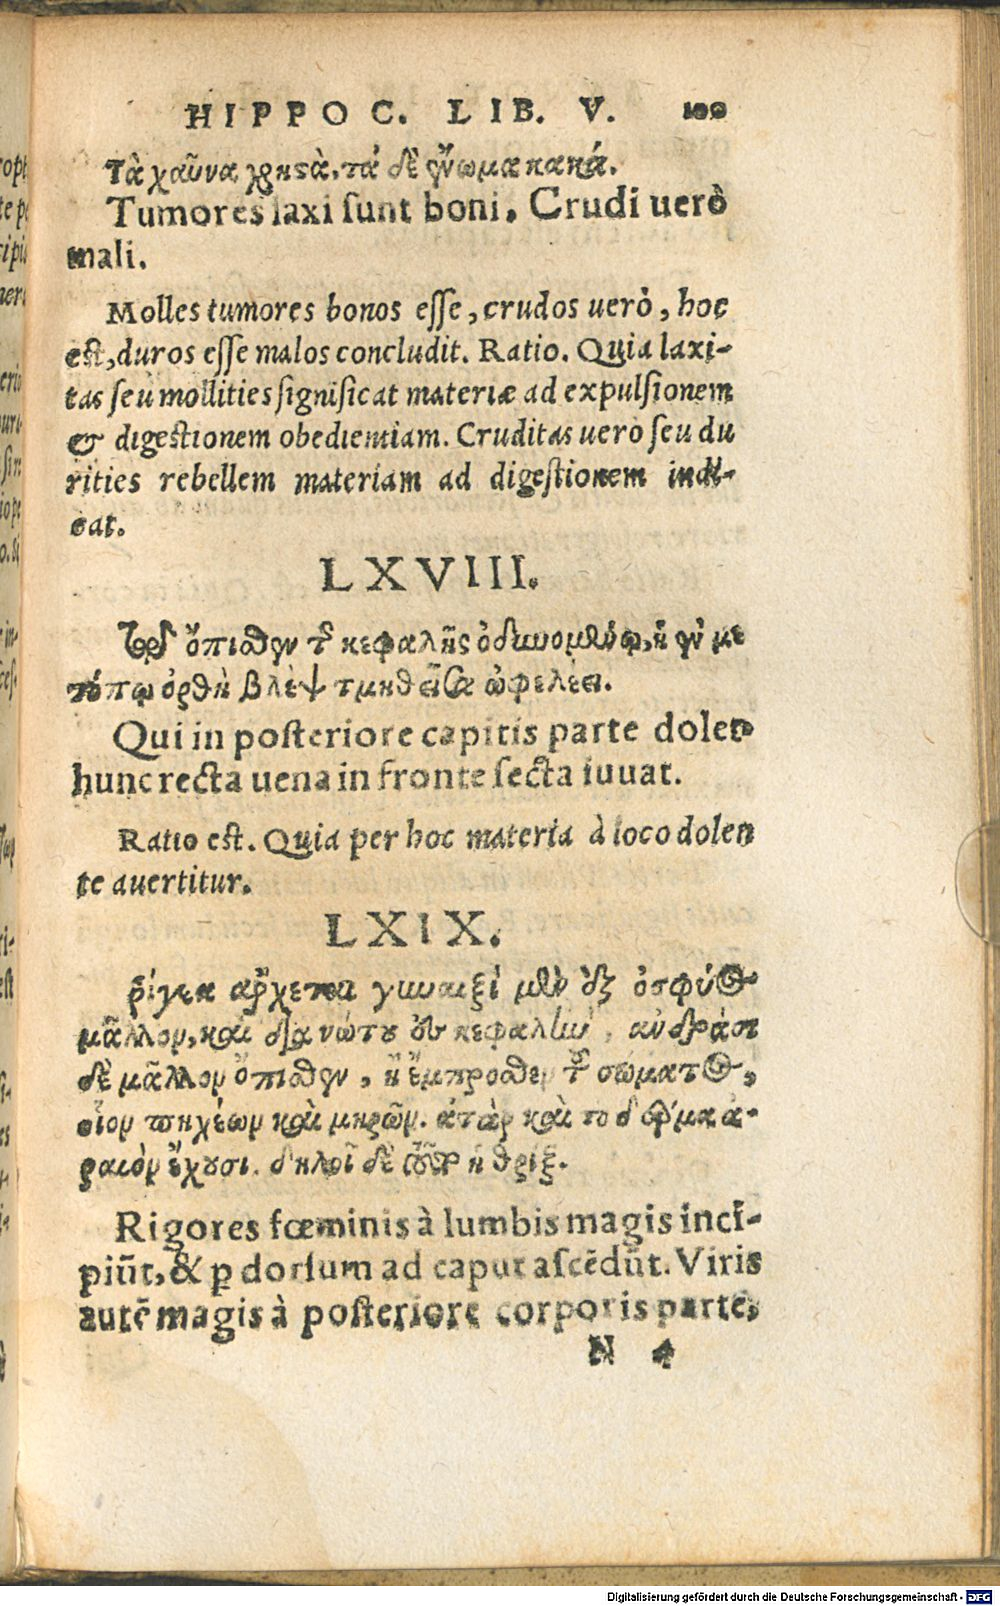 HIPPOC. LIB. V. 100
Τὰ χαῦνα χρηστὰ, τὰ δὲ ἔνωμα κακά.
Tumores laxi ſunt boni. Crudi uerò
mali.
Molles tumores bonos eſſe, crudos uerò, hoc
eſt, duros eſſe malos concludit. Ratio. Quia laxi-
tas ſeu mollities ſigniſicat materiæ ad expulſionem
& digeſtionem obedientiam. Cruditas uero ſeu du
rities rebellem materiam ad digeſtionem indi-
cat.
LXVIII.
Τῷ ὄπισθεν τῆς κεφαλῆς ὀδυνομένῳ, ἡ ἐν με
τώπῳ ὀρθὴ φλὲψ τμηθεῖσα ὠφελέει.
Qui in poſteriore capitis parte dolet
hunc recta uena in fronte ſecta iuuat.
Ratio est. Quia per hoc materia à loco dolen
te auertitur.
LXIX.
ῥίγεα ἄρχεται γυναιξί μὲν ἐξ ὀσφύος
μᾶλλον, καὶ διὰ νώτου ἐς κεφαλὴν, ἀνδράσι
δὲ μᾶλλον ὄπισθεν, ἢ ἔμπροσθεν τοῦ σώματος,
οἷον πηχέων καὶ μηρῶν. ἀτὰρ καὶ το δέρμα ἀ-
ραιὸν ἔχουσι. δηλοῖ δὲ ἡ θρίξ.
Rigores fœminis à lumbis magis inci-
piũt, & ꝑ dorſum ad caput aſcẽdũt. Viris
autẽ magis à poſteriore corporis parte,
N 4
Digitalisierung gefördert durch die Deutsche Forschungsgemeinschaft - DFG